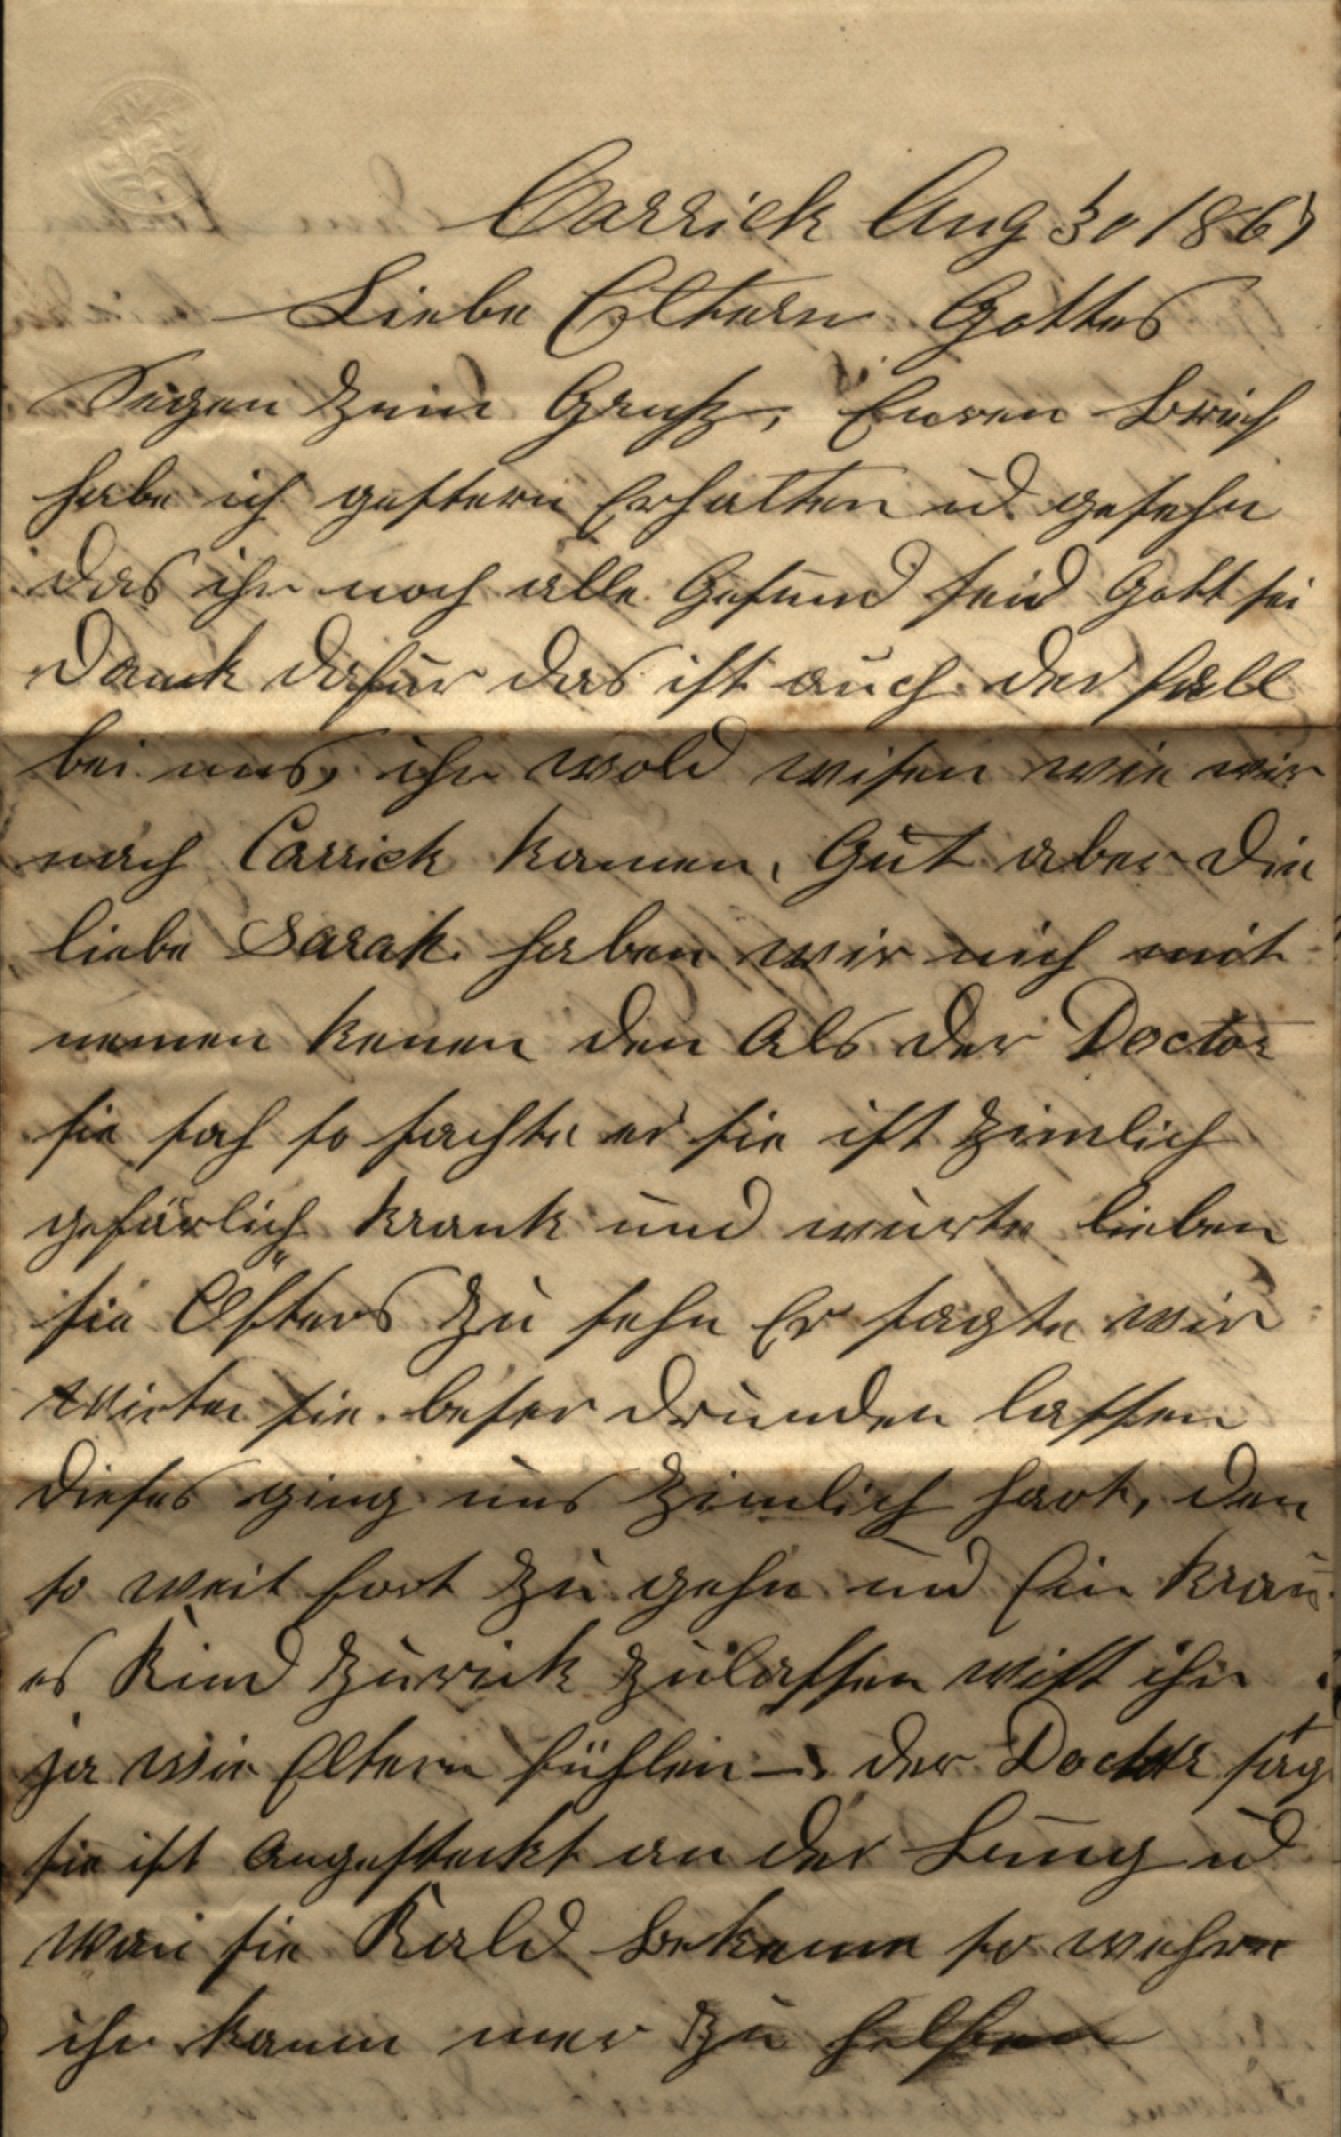 Carrick Aug 30 1867
Liebe Eltern Gottes
Segen zum Grusz, Euren brief
habe ich gestern Erhalten ud gesehn
das ihr noch alle Gesund seid Gott sei
Dank dafur das ist auch der fall
bei uns, ihr wold wisen wie wir
nach Carrick kamen, Gut aber die
liebe Sarah haben wir nich mit
nemen kenen den Als der Doctor
sie sah so sachte er sie ist zimlich
gefärlich krank und wurte lieben
sie Öfters zu sehn Er sagte wir
wirten sie beser drunden lassen
dieses ging uns zimlich hart, den
so weit fort zu gehn und Ein kran
es Kind zurick zulassen wist ihr
ja wie Eltern fühlen — der Doctor sag
sie ist Angestekt an der Lung ud
wan sie Kald bekame so wehre
ihr kaum mer zu helfen